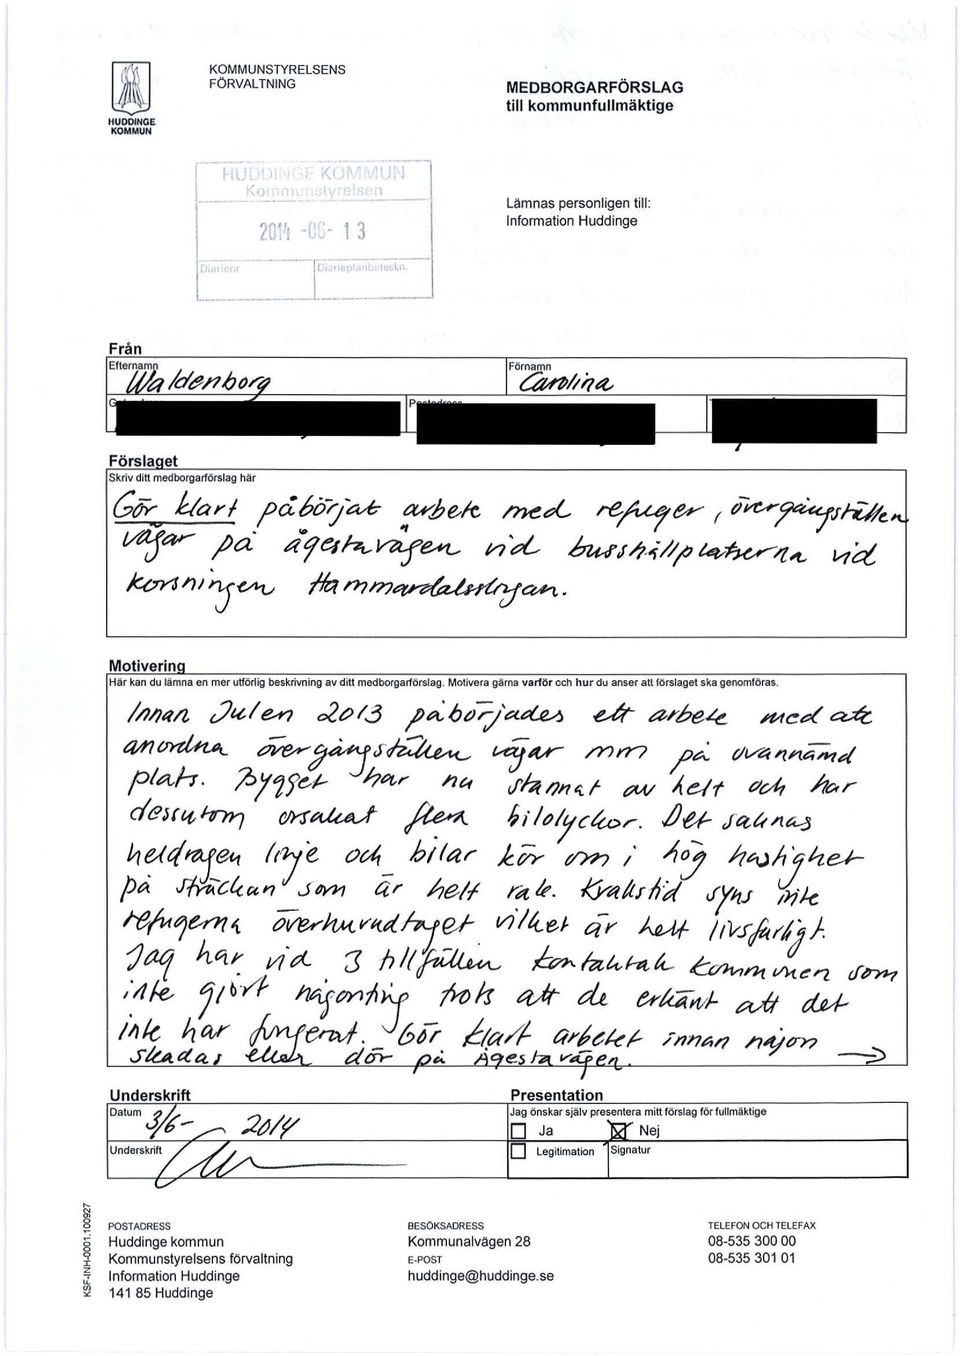 HUDDINGE
KOMMUN
KOMMUNSTYRELSENS
FÖRVALTNING
MEDBORGARFÖRSLAG
till kommunfullmäktige
HUDDINGE KOMMUN
Kommunstyrelsen
2014 -06- 13
Diarienr Diarieplanbeteckn.
Lämnas personligen till:
Information Huddinge
Från
Efternamn Förnamn
Waldenborg Carolina
Förslaget
Skriv ditt medborgarförslag här
Gör klart påbörjat arbete med refuger, övergångställen
vägar på ågestavägen vid busshållplatserna vid
korsningen Hammardalsslingan.
Motivering
Här kan du lämna en mer utförlig beskrivning av ditt medborgarförslag. Motivera gärna varför och hur du anser att förslaget ska genomföras.
Innan Julen 2013 påbörjades ett arbete med att
anordna övergångställen vägar mm på ovannämd
plats. Bygget har nu stannat av helt och har
dessutom orsakat flera bilolyckor. Det saknas
heldragen linje och bilar kör om i hög hastighet
på sträckan som är helt rak. Kvällstid syns inte
refugerna överhuvudtaget vilket är helt livsfarligt.
Jag har vid 3 tillfällen kontaktat kommunen som
inte gjort någonting trots att de erkänt att det
inte har fungerat. Gör klart arbetet innan någon
skadas eller dör på Ågestavägen.
Underskrift
Datum 3/6- 2014
Underskrift
Presentation
Jag önskar själv presentera mitt förslag för fullmäktige
Ja Nej
Legitimation Signatur
KSF-INH-0001.100927
POSTADRESS
Huddinge kommun
Kommunstyrelsens förvaltning
Information Huddinge
141 85 Huddinge
BESÖKSADRESS
Kommunalvägen 28
E-POST
huddinge@huddinge.se
TELEFON OCH TELEFAX
08-535 300 00
08-535 301 01